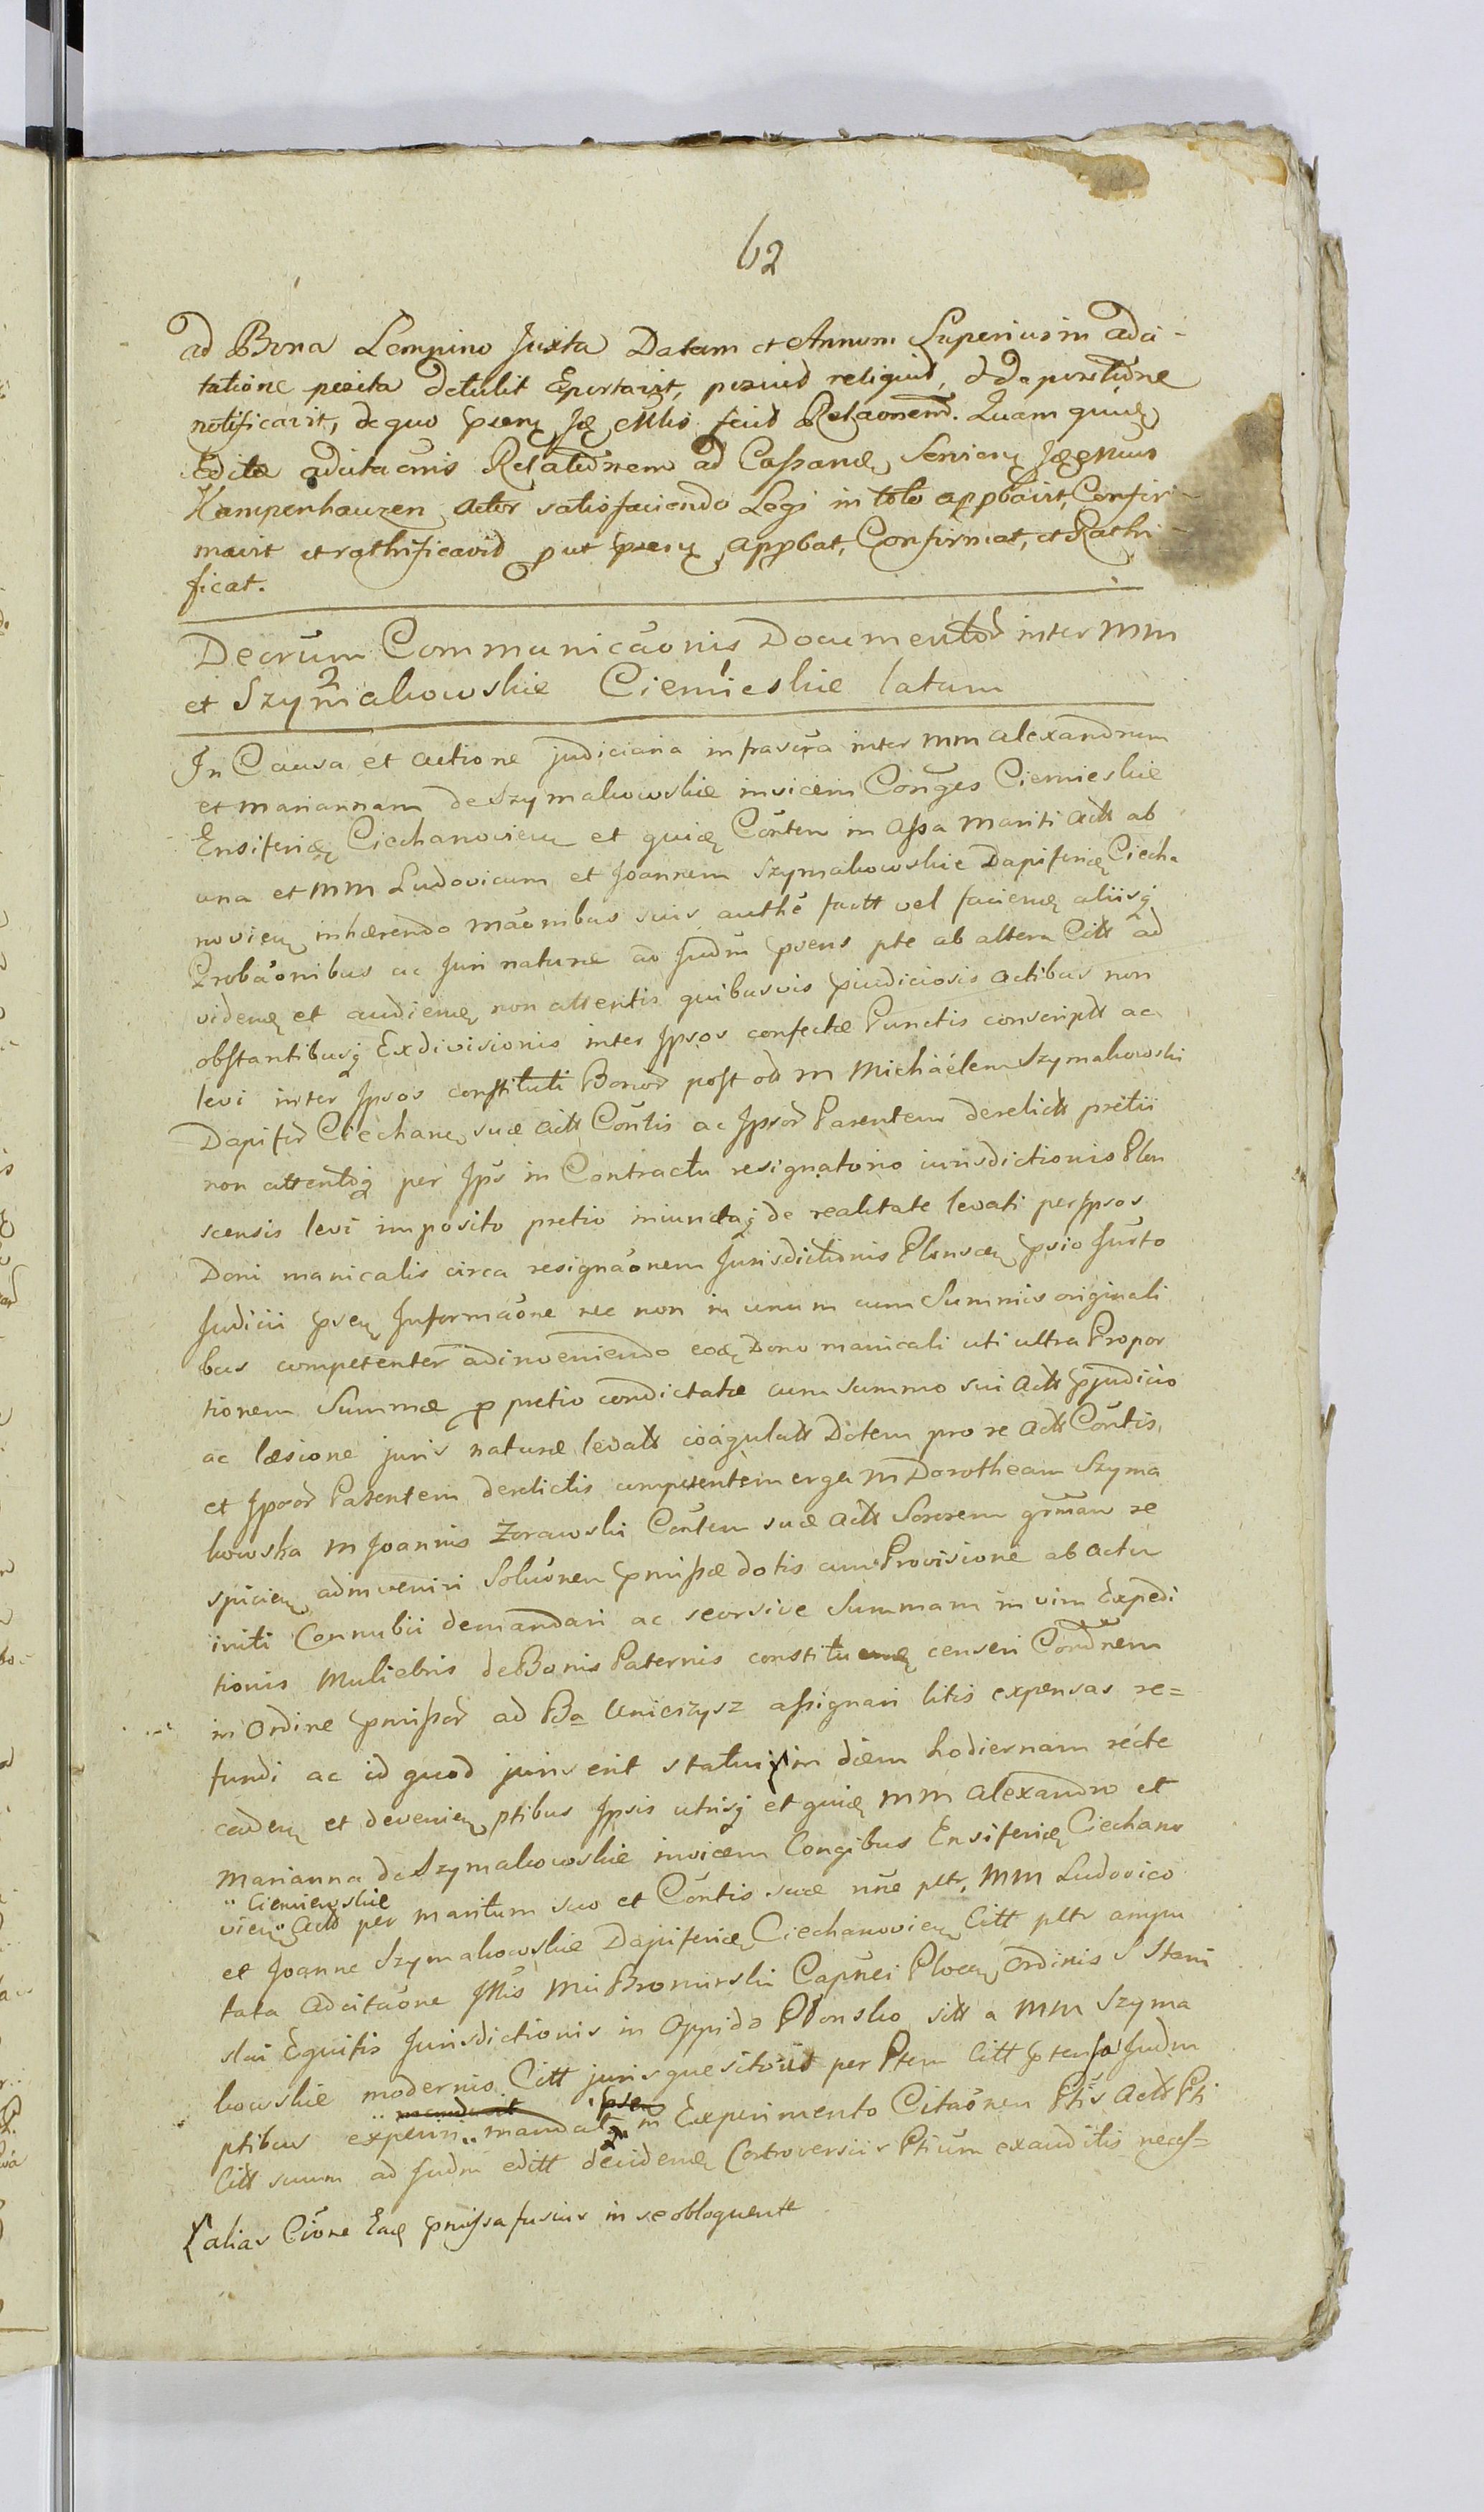 62
ad Bona Lempino Juxta Datam et Annum Superius in adci-
tatione posita detulit Eportavit, posuid reliquid, et de positione
notificavit, de quo psens Jd Mlis feiid Relaonem. Quam quid
Editæ adcitaonis Relationem ad Cassand, Serviens
Kampenhauzen Actor satisfaciendo Legi in toto appbavit, Confir-
mavit et rathificavid put psens appbat, Confirmat, et Rathi-
ficat.
Decrum Communicaonis Documentor inter MM
et Szymakowskie Ciemieskie latum
In Causa et actione judiciaria infrascra inter MM Alexandrum
et Mariannam de Szymakowskie invicem Conges Ciemieskie
Ensiferid Ciechanoviens et quid Conten in Assa Mariti Actt ab
una et MM Ludovicum et Joannem Szymakowskie Dapiferid Ciecha
noviens inhærendo Maonibus suis authe factt vel faciend aliisq
Probaonibus ac Juri naturæ ad Judm psens pte ab altera Citt ad
vidend et audiend non attentis quibusvis pjudiciosis actibus non
obstantibusq Exdivisionis inter Ipsos confectæ Punctis conscriptt ac
levi inter Ipsos constituti Bonor post od M Michaélem Szymakowski
Dapifer Ciechans suæ Actt Contis ac Ipsor Parentem derelictt pretii
non attentoq per Ips in Contractu resignatorio iurisdictionis Plon
scensis levi imposito pretio iniunctaq de realitate levati per Ipsos
Doni manicalis circa resignaonem Jurisdictionis Plonscen psio Justo
Judicii psens Informaone nec non in unum cum Summis originali
bus competenter adinveniendo eod Dono manicali uti ultra Propor
tionem Summæ p pretio condictatæ cum summo sui Actt pjudicio
ac læsione juris naturæ levatt coagulatt Dotem pro re Actt Contis
et Ipsor Parentem derelictis competentem erga M Dorotheam Szyma
kowska M Joannis Zorawski Conten suæ Actt Sororem grman re
spiciens adinveniri Soluonem pmissæ dotis cum Provisione ab actu
initi Connubii demandari ac seorsive Summam in vim Expedi
tionis Muliebris de Bonis Paternis constituend censeri Condnem
in Ordine pmissor ad Ba Uniczysz assignari litis expensas re=
fundi ac id quod juris erit statui in diem hodiernam recte
cadens et deveniens ptibus Ipsis utrisq et quid MM Alexandro et
Marianna de Szymakowskie invicem Congibus Ensiferid Ciechano
Ciemiewskie
viens Actt per Maritum suo et Contis suæ nne pltr, MM Ludovico
et Joanne Szymakowskie Dapiferid Ciechanoviens Citt pltr ampu
tata Adcitaone Mis Mii Bromirski Capnei Plocen Ordinis S Stani
slai Equitis Jurisdictionis in Oppido Plonsko sitt a MM Szyma
kowskie modernis Citt juris quesitor per Ptem Citt ptensa Judm
ptibus experin mandat in Experimento Citaonen Ptis Actt Pti
Citt suum ad Judm editt decidend Controversiis Ptium exauditis necess=
alias Cione Ead pmissa fusius in se obloquente